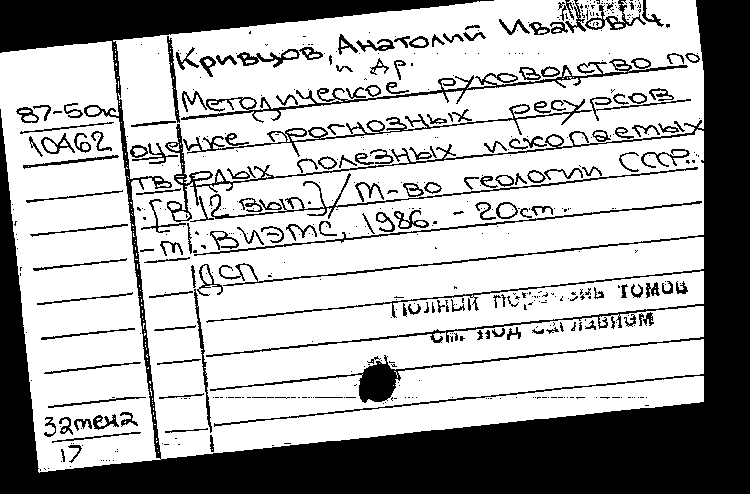 Кривцов, Анатолий Иванович.
и др.
87-50к
10462
Методическое руководство по
оценке прогнозных ресурсов
твердых полезных ископаемых
: [В 12 вып.] / М-во геологии СССР. -
- М.: ВИЭМС, 1986. - 20см. -
ДСП.
Полный перечень томов
см. под заглавием
32тен2
17